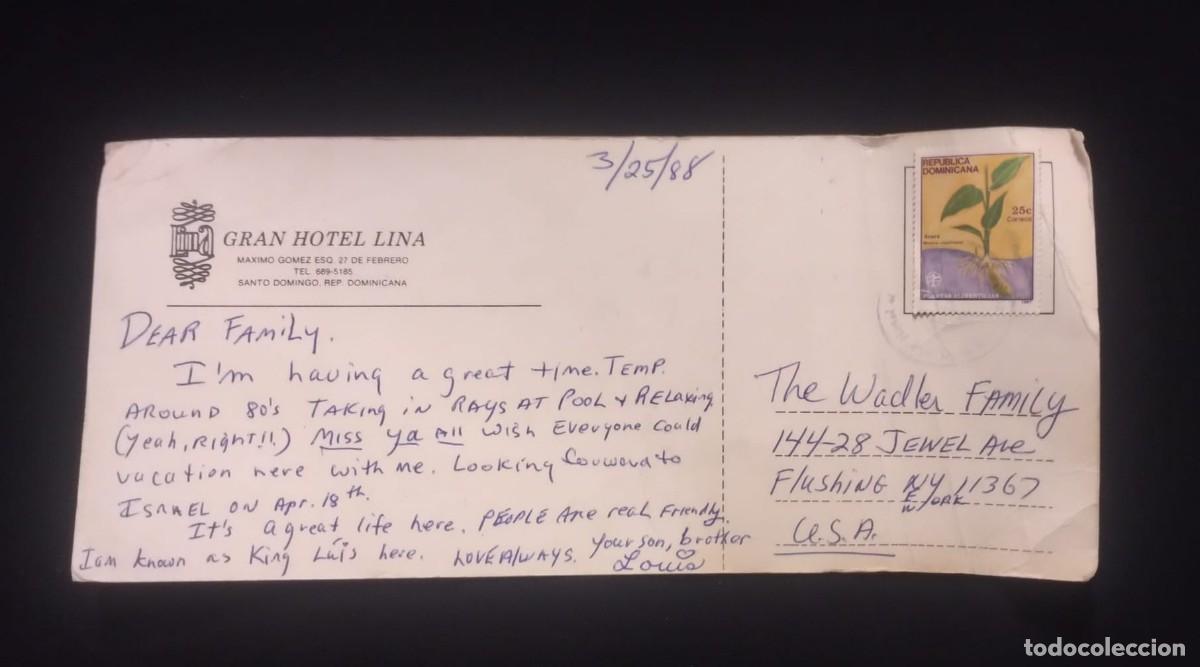 3/25/88
Lina
GRAN HOTEL LINA
MAXIMO GOMEZ ESQ. 27 DE FEBRERO
TEL. 689-5185
SANTO DOMINGO, REP. DOMINICANA
DEAR FAMILY.
I'm having a great time. TEMP.
AROUND 80's TAKING in RAYS AT POOL & RELAXING
(Yeah, RIGHT!!.) MISS ya All WISH Everyone Could
vacation here with me. Looking forward to
ISRAEL ON Apr. 18th.
It's a great life here. PEOPLE Are real Friendly.
I am known as King Luis here. LOVE AlWAYS. Your son, brother
Louis
REPUBLICA
DOMINICANA
25c
Correos
PLANTAS ALIMENTICIAS
The Wadler FAMILY
144-28 JEWEL Ave
Flushing NY 11367
NEW YORK
U.S.A.
todocoleccion